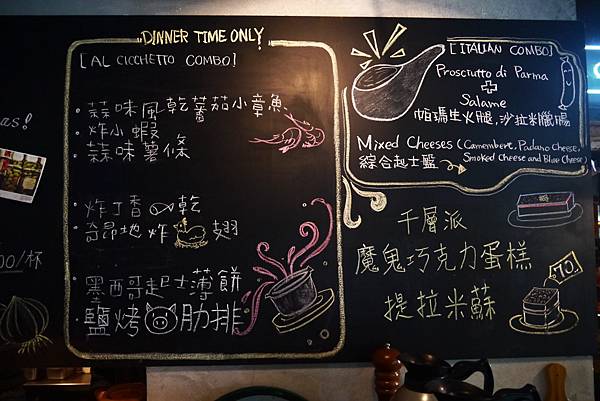 as!
00/杯
DINNER TIME ONLY!
[AL CICCHETTO COMBO]
・蒜味風乾蕃茄小章魚
・炸小蝦
・蒜味薯條
・炸丁香乾
・奇昂地炸翅
・墨西哥起士薄餅
・鹽烤肋排
[ITALIAN COMBO]
Prosciutto di Parma
+
Salame
帕瑪生火腿,沙拉米臘腸
Mixed Cheeses (Camembere, Padano Cheese,
綜合起士盤 Smoked Cheese and Blue Cheese)
千層派
魔鬼巧克力蛋糕
提拉米蘇
70.